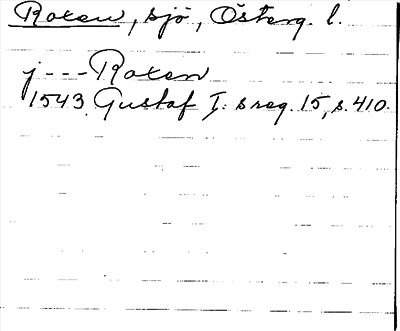 Roxen, sjö, Österg. l.
j---Roxen
1543 Gustaf I:s reg. 15, s. 410.